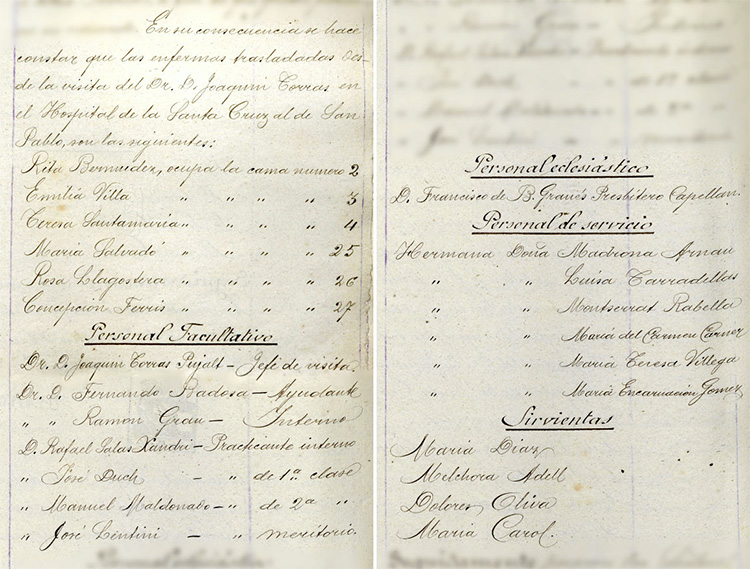 En su consecuencia se hace
constar que las enfermas trasladadas des-
de la visita del Dr. D. Joaquin Torras en
el Hospital de la Santa Cruz al de San
Pablo, son las siguientes:
Rita Bermudez, ocupa la cama numero 2
Emilia Villa " " " " 3
Teresa Santamaria " " " " 4
Maria Salvadó " " " " 25
Rosa Llagostera " " " " 26
Concepción Ferris " " " " 27
Personal Facultativo
Dr. D. Joaquin Torras Pujalt — Jefe de visita.
Dr. D. Fernando Badosa — Ayudante
" " Ramon Grau — Interno
D. Rafael Salas Xandri — Practicante interno
" José Duch — " de 1ª clase
" Manuel Maldonado — " de 2ª "
" José Lentini — " meritorio.
Personal eclesiástico
D. Francisco de B. Granés Presbítero Capellan.
Personal de servicio
Hermana Doña Madrona Arnau
" " Luisa Tarradellas
" " Montserrat Rabella
" " Maria del Carmen Carner
" " Maria Teresa Villega
" " Maria Encarnación Gomez
Sirvientas
Maria Diaz
Melchora Adell
Dolores Oliva
Maria Carol.